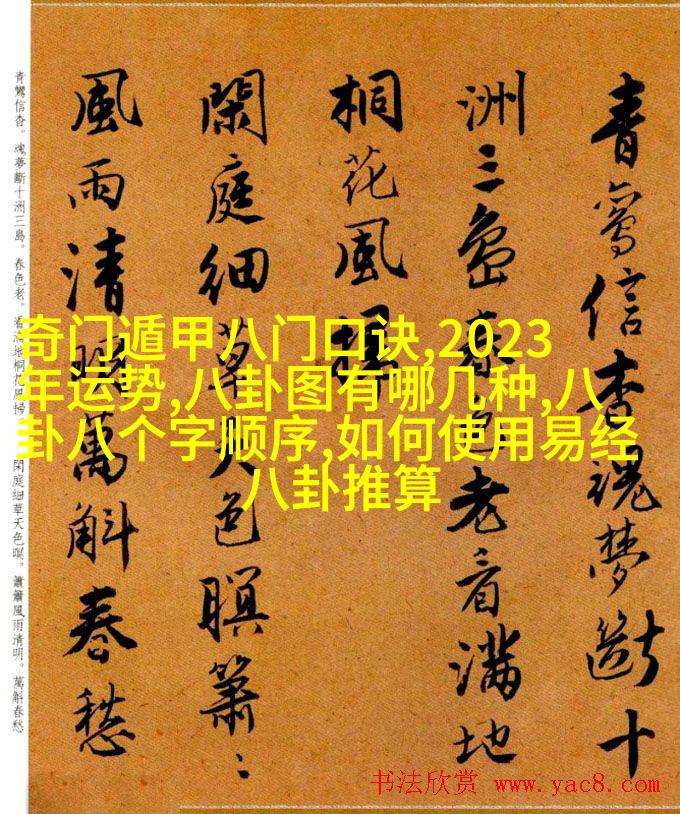 青鸞信杳魂夢斷十
洲三島春色老看滿地
桐花風掃
閑庭細草天色瞑簫〻
風雨清明萬斛春愁
青鸞信杳。魂夢斷十洲三島。春色老。看滿地桐花風掃。閑庭細草天色暝。簫簫風雨清明。萬斛春愁
奇门遁甲八门口诀,2023
年运势,八卦图有哪几种,八
卦八个字顺序,如何使用易经
八卦推算
书法欣赏 www.yac8.com